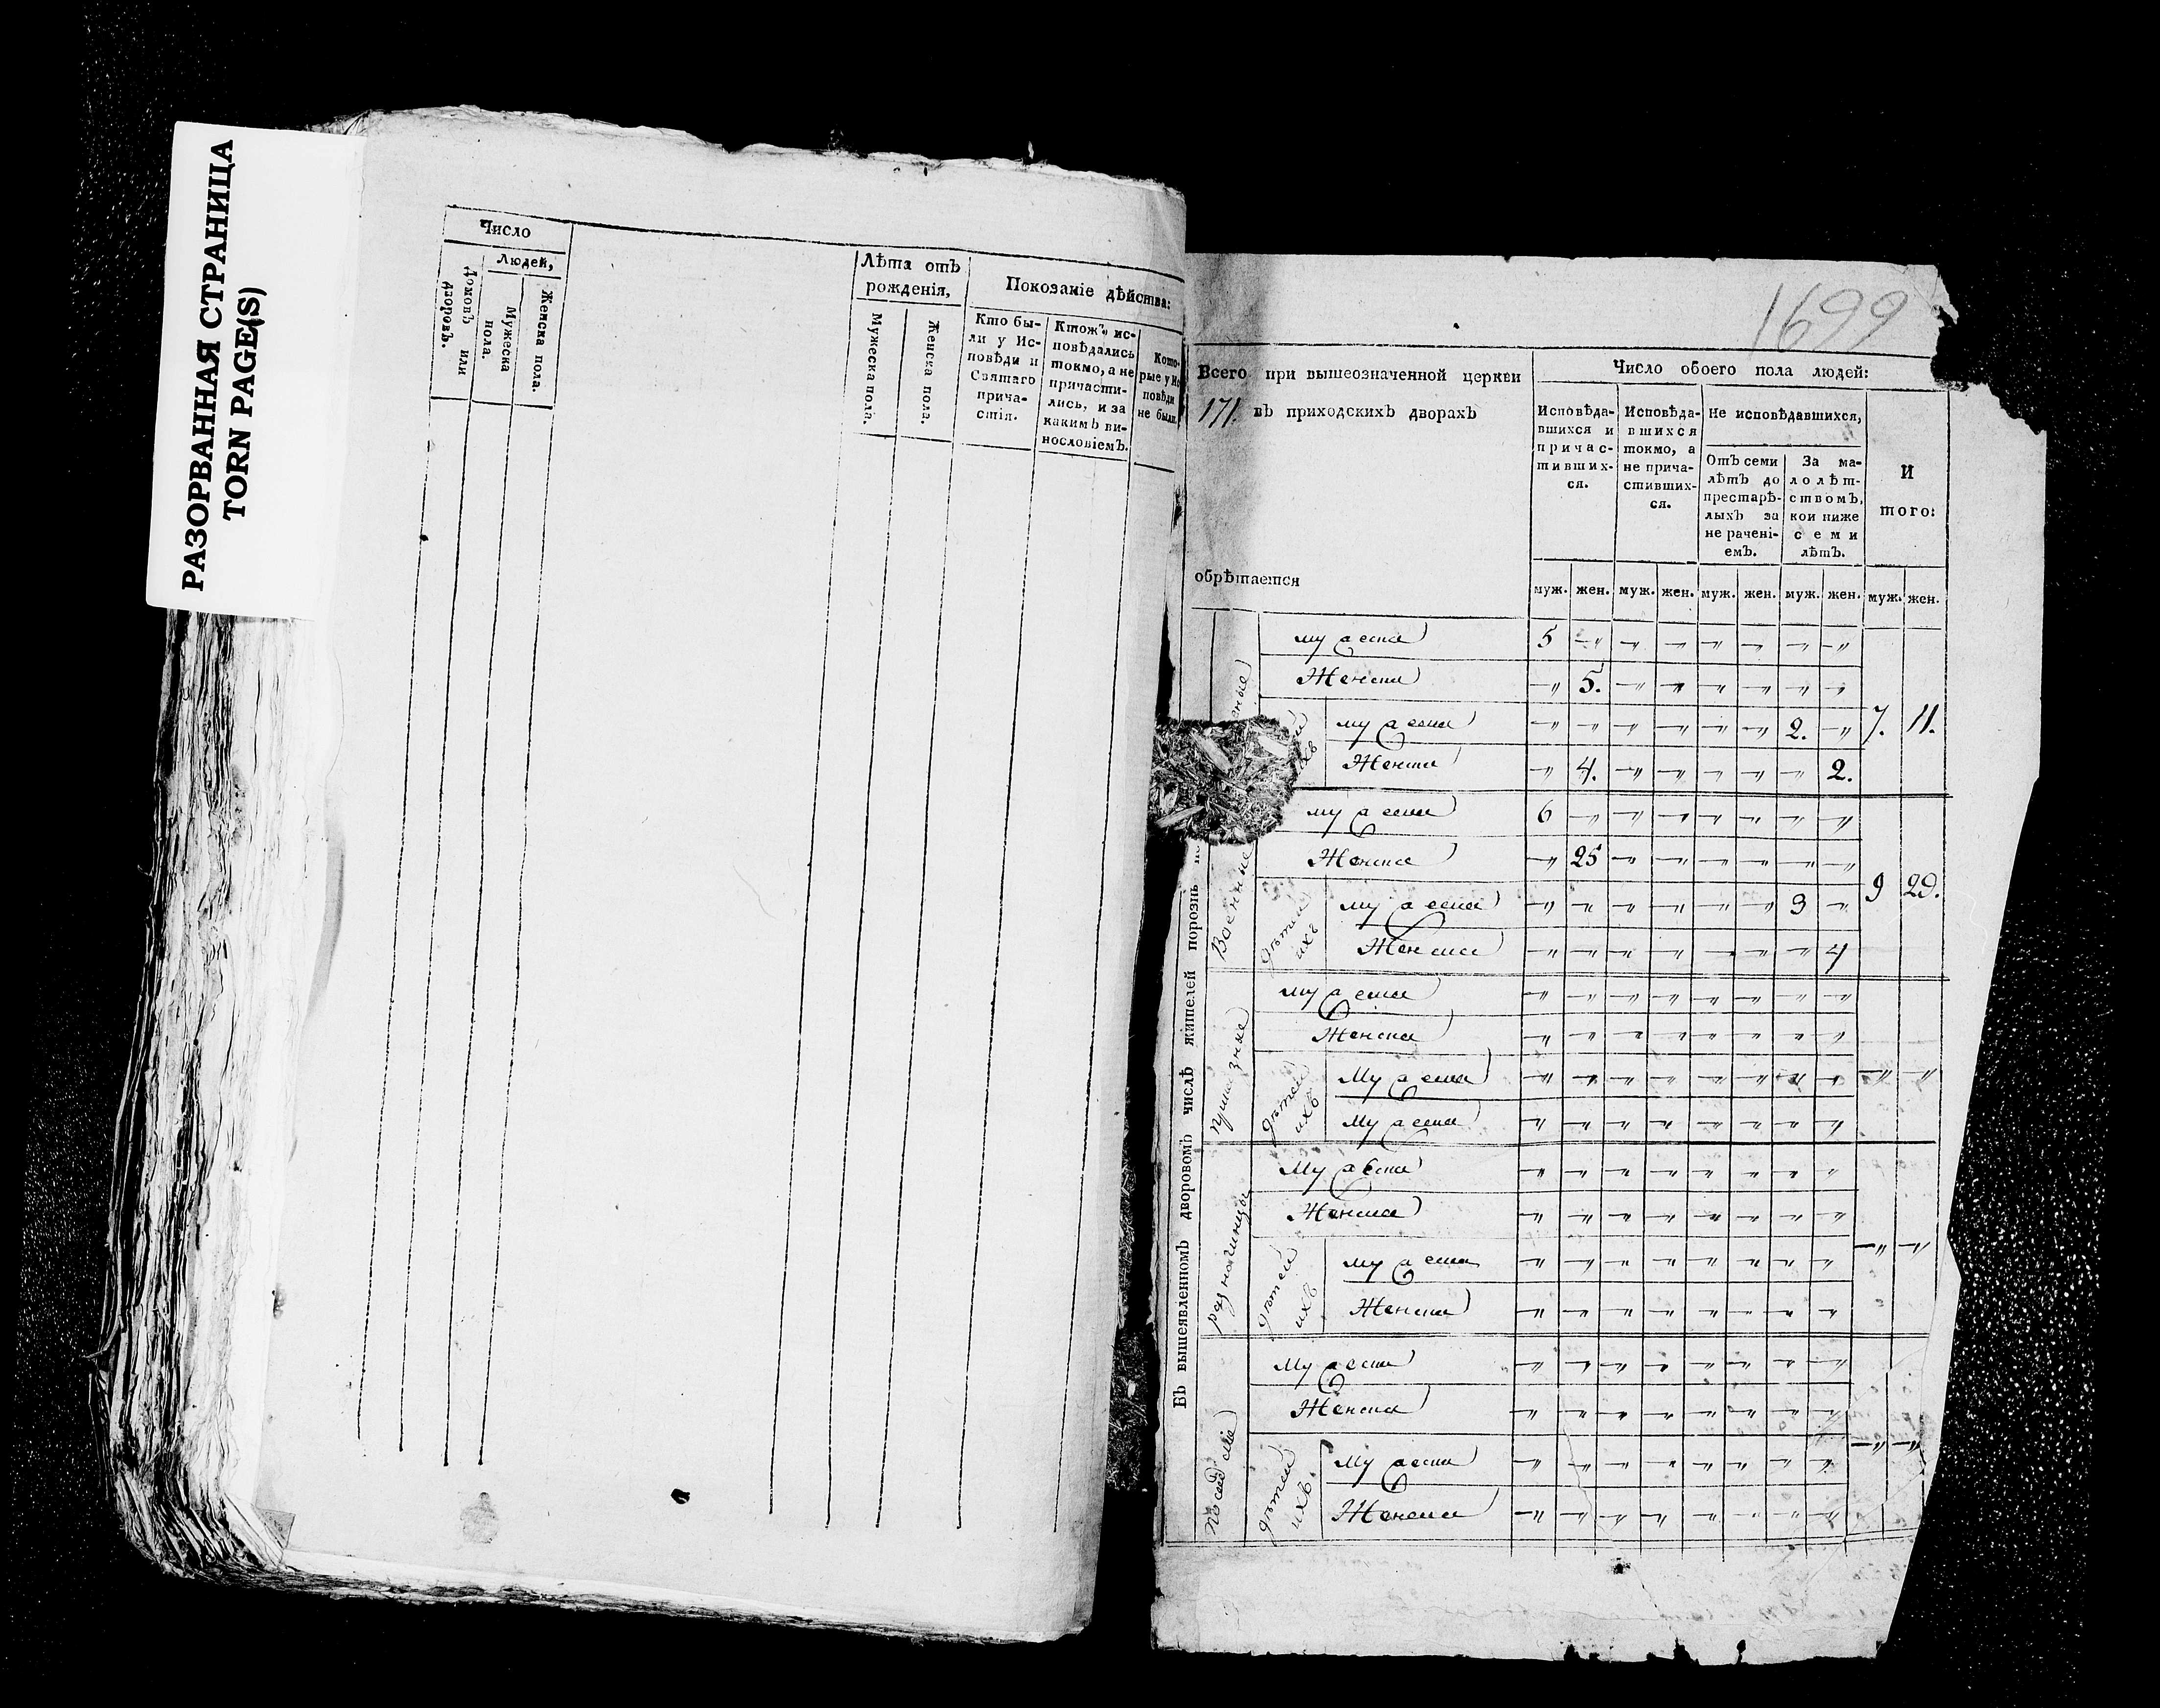 РАЗОРВАННАЯ СТРАНИЦА
TORN PAGE(S)
Число
Домовъ или дворовъ.
Людей,
Мужеска пола.
Женска пола.
Лѣта отъ
рожденія,
Мужеска пола.
Женска пола.
Покозаніе дѣйства:
Кто бы-
ли у Ис-
повѣди и
Святаго
прича-
стія.
Ктожъ ис-
повѣдались
токмо, а не
причасти-
лись, и за
какимъ ви-
нословіемъ.
Кото-
рые у Ис
повѣди
не были.
1699
Всего при вышеозначенной церкви
171. въ приходскихъ дворахъ
обрѣтается
Число обоего пола людей:
Исповѣда-
вшихся и
причас-
тивших-
ся.
Исповѣда-
вшихся
токмо, а
не прича-
стивших-
ся.
Не исповѣдавшихся,
Отъ семи
лѣтъ до
престарѣ-
лыхъ за
не рачені-
емъ.
За ма-
лолѣт-
ствомъ,
кои ниже
семи
лѣтъ.
И
того:
муж. жен. муж. жен. муж. жен. муж. жен. муж. жен.
Въ вышеявленномъ дворовомъ числѣ жителей порознь
муеска 5 " " " " " " "
Женска " 5. " " " " " "
ихъ
муеска " " " " " " 2. " 7. 11.
Женска " 4. " " " " " 2.
Военные
муеска 6 " " " " " " "
Женска " 25 " " " " " "
дѣтей ихъ
муеска " " " " " " 3 " 9 29.
Женска " " " " " " " 4
муеска " " " " " " " "
Женска " " " " " " " "
дѣтей ихъ
муеска " " " " " " " " " "
муеска " " " " " " " "
разночинцы
муеска " " " " " " " "
Женска " " " " " " " "
дѣтей ихъ
муеска " " " " " " " " " "
Женска " " " " " " " "
муеска " " " " " " " "
Женска " " " " " " " "
дѣтей ихъ
муеска " " " " " " " " " "
Женска " " " " " " " "